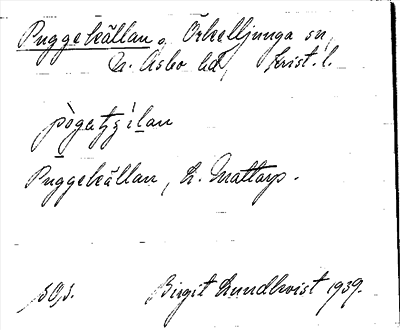 Puggekällan. Örkelljunga sn,
N. Åsbo hd, Krist. l.
Puggekällan, L. Mattarp.
Birgit Lundkvist 1939.